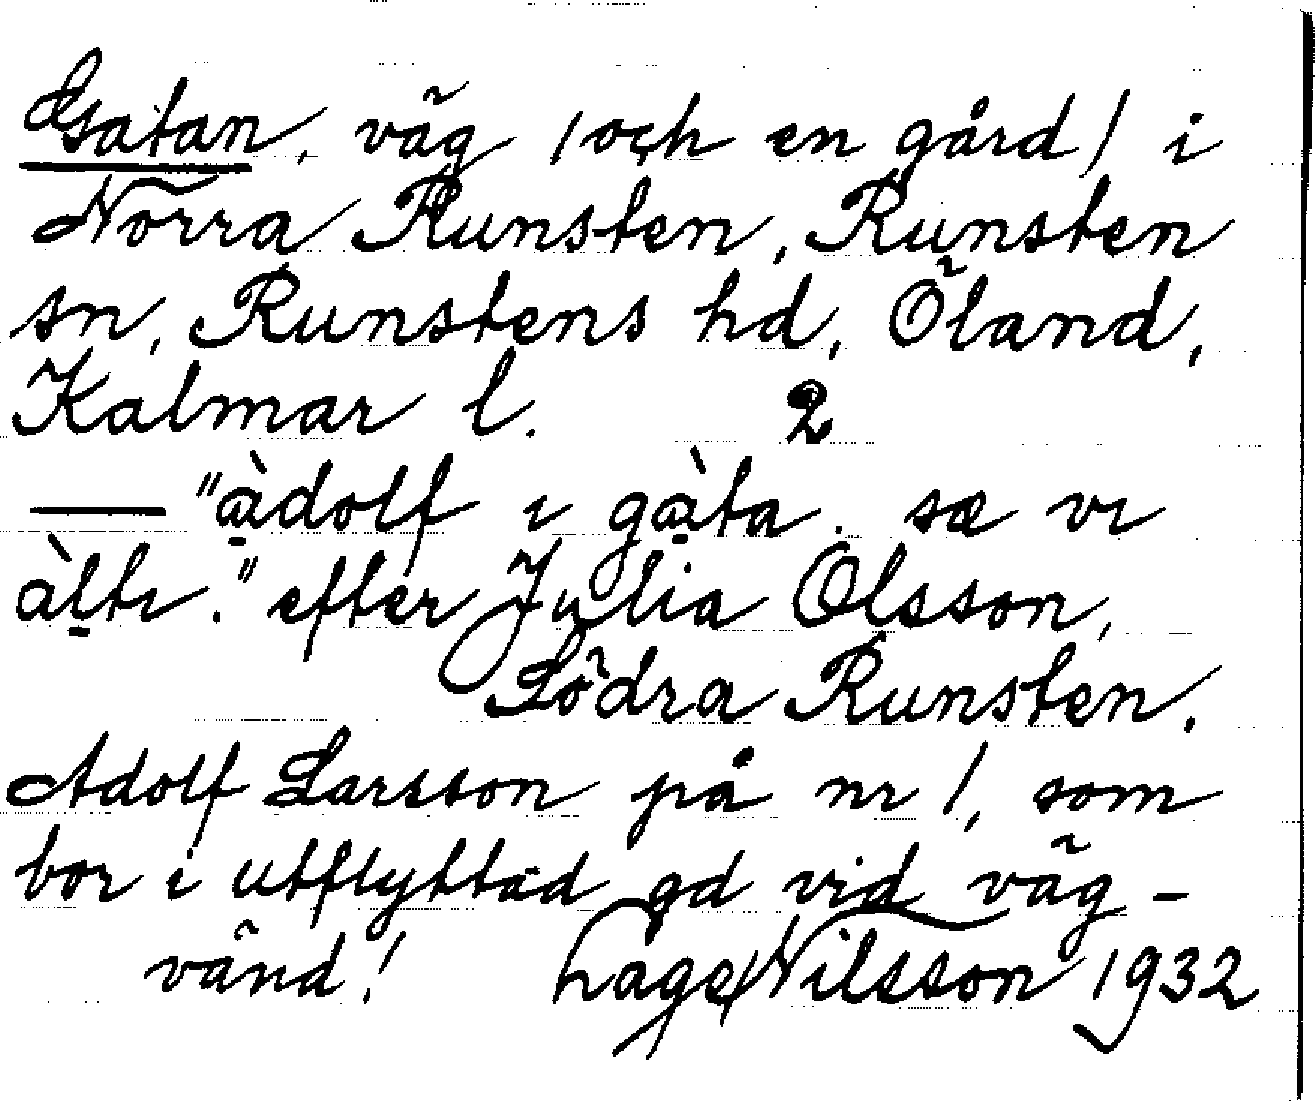 Gatan, väg (och en gård) i
Norra Runsten, Runsten
sn, Runstens hd, Öland,
Kalmar l. 2
— "àdolf ı gàta. sæ vı
àltı." efter Julia Olsson,
Södra Runsten.
Adolf Larsson på nr 1, som
bor i utflyttad gd vid väg-
vänd! Lage Nilsson 1932